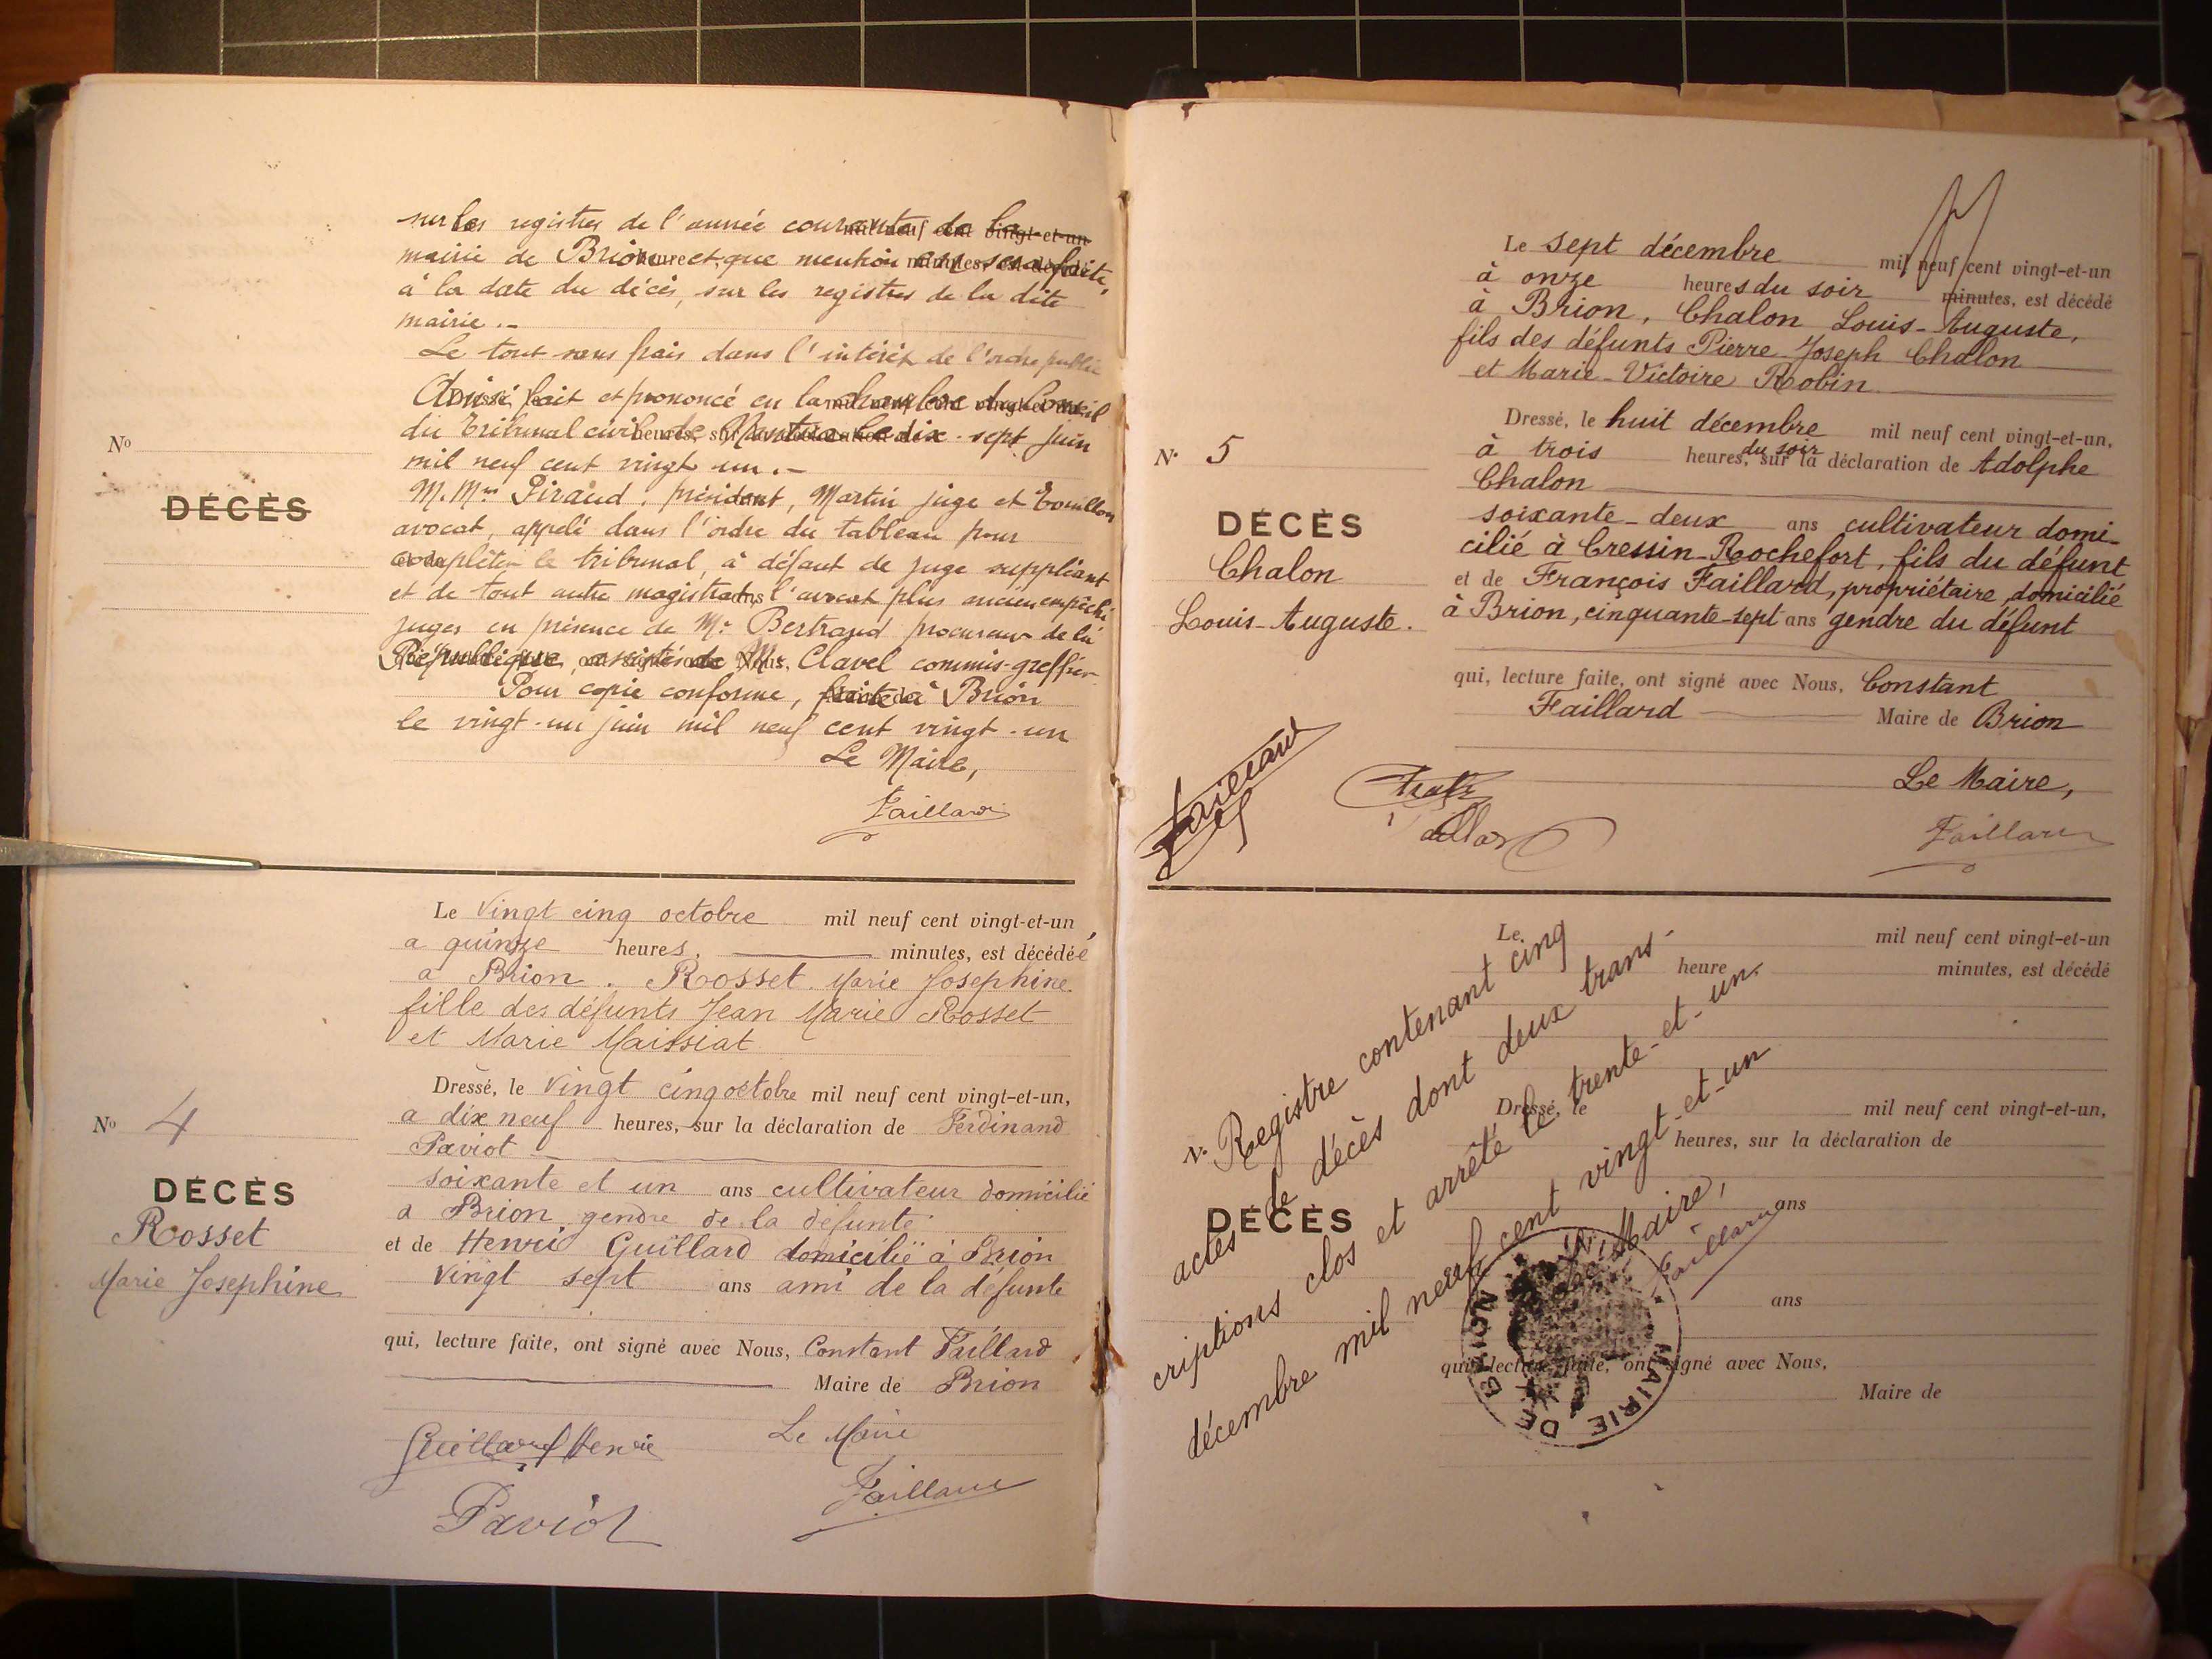 sur les registres de l'année courante de la
mairie de Brion et que mention en sera faite,
à la date du décès, sur les registres de la dite
mairie.-
Le tout sans frais dans l'intérêt de l'ordre public
Ainsi fait et prononcé en la chambre du Conseil
du Tribunal civil de Nantua le dix-sept juin
mil neuf cent vingt un.-
M.Mrs Piraud, président, Martin juge et
avocat, appelé dans l'ordre du tableau pour
compléter le tribunal, à défaut de juge suppléant
et de tout autre magistrat, l'avocat plus ancien empêché
juges en présence de Mr Bertrand procureur de la
République, assistés de Mr Clavel commis-greffier
Pour copie conforme, faite à Brion
le vingt-un juin mil neuf cent vingt-un
Le Maire,
Faillard
No
DÉCÈS
Le vingt cinq octobre mil neuf cent vingt-et-un,
a quinze heures, minutes, est décédée
a Brion. Rosset Marie Josephine
fille des défunts Jean Marie Rosset
et Marie Maissiat
Dressé, le vingt cinq octobre mil neuf cent vingt-et-un,
a dix neuf heures, sur la déclaration de Ferdinand
Paviot
soixante et un ans cultivateur domicilié
a Brion gendre de la défunte
et de Henri Guillard domicilié à Brion
vingt sept ans ami de la défunte
qui, lecture faite, ont signé avec Nous, Constant Faillard
Maire de Brion
No 4
DÉCÈS
Rosset
Marie Josephine
Guillard Henri
Le Maire
Faillard
Paviot
Le sept décembre mil neuf cent vingt-et-un
à onze heures du soir minutes, est décédé
à Brion, Chalon Louis-Auguste,
fils des défunts Pierre-Joseph Chalon
et Marie-Victoire Robin
Dressé, le huit décembre mil neuf cent vingt-et-un,
à trois heures, du soir sur la déclaration de Adolphe
Chalon
soixante-deux ans cultivateur domi-
cilié à Cressin-Rochefort, fils du défunt
et de François Faillard, propriétaire, domicilié
à Brion, cinquante-sept ans gendre du défunt
qui, lecture faite, ont signé avec Nous, Constant
Faillard Maire de Brion
N° 5
DÉCÈS
Chalon
Louis-Auguste.
Faillard
Le Maire,
Faillard
Le mil neuf cent vingt-et-un
heure minutes, est décédé
Dressé, le mil neuf cent vingt-et-un,
heures, sur la déclaration de
ans
ans
qui, lecture faite, ont signé avec Nous,
Maire de
N°
DÉCÈS
Registre contenant cinq
actes de décès dont deux trans-
criptions clos et arrêté le trente-et-un
décembre mil neuf cent vingt-et-un
Le Maire,
Faillard
MAIRIE DE BRION